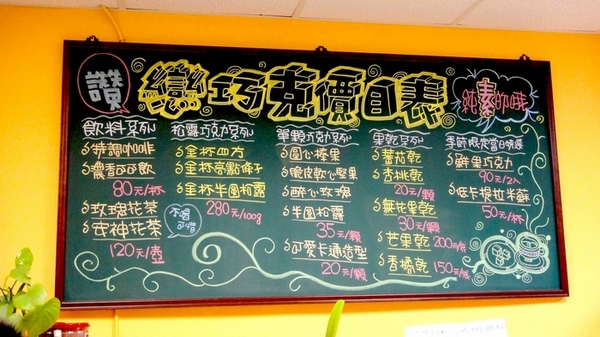 讚
戀巧克價目表
純素的哦
飲料系列
特調咖啡
濃香可可飲
80元/杯
玫瑰花茶
安神花茶
120元/壺
松露巧克力系列
金杯四方
金杯亮點條子
金杯半圓松露
280元/100g
不嚐
可惜
單顆巧克力系列
圓心榛果
脆皮軟心堅果
醉心玫瑰
半圓松露
35元/顆
可愛卡通造型
20元/顆
果乾系列
蕃茄乾
杏桃乾
20元/顆
無花果乾
30元/顆
芒果乾 200元/
香橘乾 150元/
季節限定當日現送
鮮果巧克力
90元/2入
低卡提拉米蘇
50元/杯